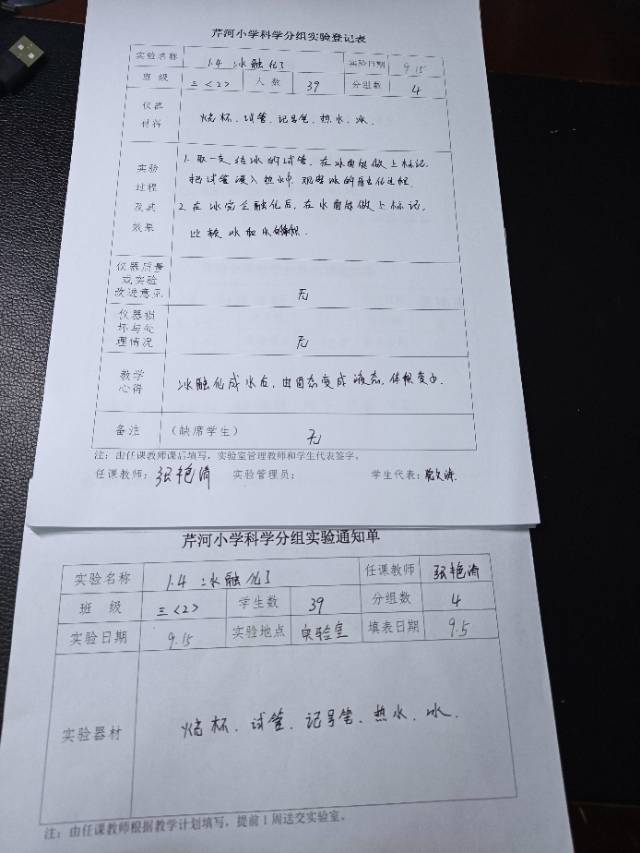 芹河小学科学分组实验登记表
实验名称 1.4 冰融化了 实验日期 9.15
班 级 三〈2〉 人 数 39 分组数 4
仪器
材料
烧杯、试管、记号笔、热水、冰.
实验
过程
及其
效果
1. 取一支结冰的试管,在冰面层做上标记.
把试管浸入热水中,观察冰的融化过程.
2. 在冰完全融化后,在水面层做上标记,
比较冰和水的体积.
仪器质量
或实验
改进意见
无
仪器损
坏与处
理情况
无
教学
心得
冰融化成水后,由固态变成液态,体积变小.
备注 (缺席学生) 无
注:由任课教师课后填写,实验室管理教师和学生代表签字。
任课教师:张艳清 实验管理员: 学生代表:
芹河小学科学分组实验通知单
实验名称 1.4 冰融化了 任课教师 张艳清
班 级 三〈2〉 学生数 39 分组数 4
实验日期 9.15 实验地点 实验室 填表日期 9.5
实验器材 烧杯、试管、记号笔、热水、冰.
注:由任课教师根据教学计划填写,提前1周送交实验室。